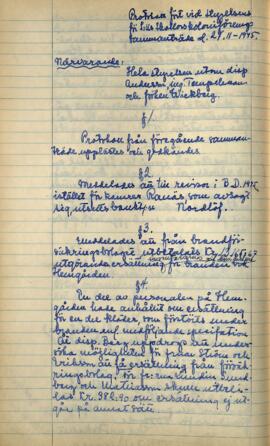 Protokoll fört vid styrelsens
för Lilla Skollovskoloniförenings
sammanträde d. 27.11-1945.
Närvarande:
Hela styrelsen utom disp
Andersén, ing. Tengelsson
och fröken Wickberg.
§1.
Protokoll från föregående samman-
träde upplästes och godkändes
§2
Meddelades att till revisor i B.D. 1945
istället för kamrer Ranäs, som avsagt
sig, utsetts banktjm Nordlöf.
§3.
Meddelades att från brandför-
säkringsbolaget utbetalats Kr.
utgörande ersättning för branden vid
Hemgården
§4.
En del av personalen på Hem-
gården hade anhållit om ersättning
för en del kläder som förstörts under
branden enl. medföljande specifikation
åt disp. Berg uppdrogs att under-
söka möjligheten för fruar Ström och
Eriksson att få ersättning från försäk-
ringsbolag. För
berg och Matsson skulle utbeta-
las Kr. 386:90 om ersättning ej ut-
går på annat sätt.